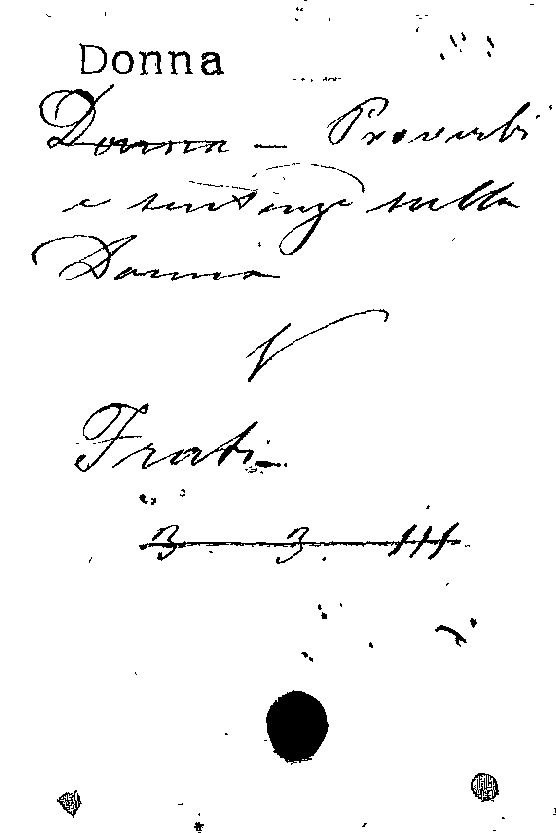 Donna
Donna - Proverbi
e sentenze sulla
Donna
V
Frati
3 3 III